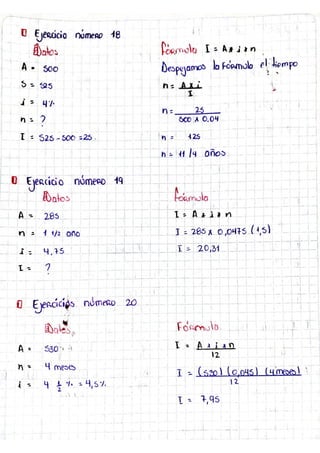 Ejercicio número 18
Datos
Fórmula I = A * i * n
A = 500
Despejamos la Fórmula el tiempo
S = 525
n = A x i
I
i = 4%
n = 25
500 x 0,04
n = ?
I = 525 - 500 = 25
n = 125
n = 1 1/4 años
Ejercicio número 19
Datos
Fórmula
A = 285
I = A * i * n
n = 1 1/2 año
I = 285 x 0,0475 (1,5)
i = 4,75
I = 20,31
I = ?
Ejercicios número 20
Datos
Fórmula
A = 530
I = A * i * n
12
n = 4 meses
I = (530) (0,045) (4 meses)
12
i = 4 1/2 % = 4,5%
I = 7,95